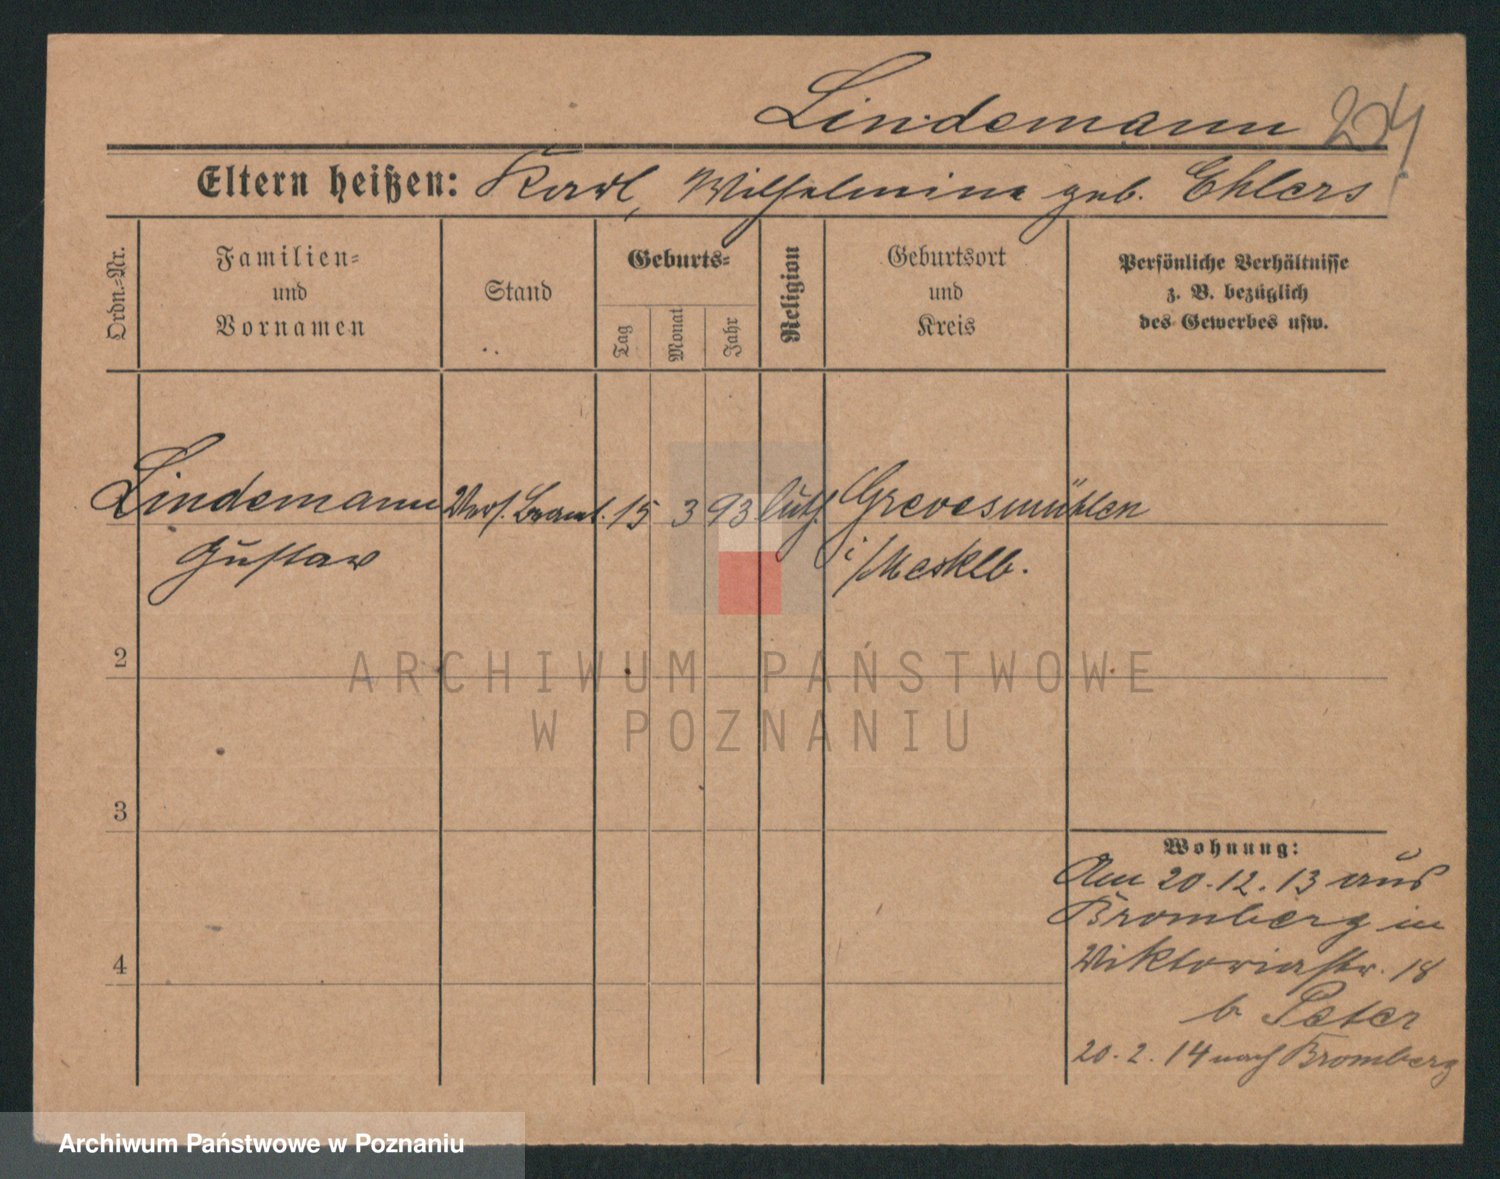 Lindemann
Eltern heißen: Karl, Wilhelmine geb. Ehlers
Ordn.-Nr.
Familien-
und
Vornamen
Stand
Geburts-
Tag
Monat
Jahr
Religion
Geburtsort
und
Kreis
Persönliche Verhältnisse
z. B. bezüglich
des Gewerbes usw.
Lindemann Vers. Beamt. 15 3 93 luth. Grevesmühlen
Gustav i/Mecklb.
2
ARCHIWUM PAŃSTWOWE
W POZNANIU
3
Wohnung:
Am 20.12.13 aus
Bromberg in
Viktoriastr. 18
b Peter
4
20.2.14 nach Bromberg
Archiwum Państwowe w Poznaniu